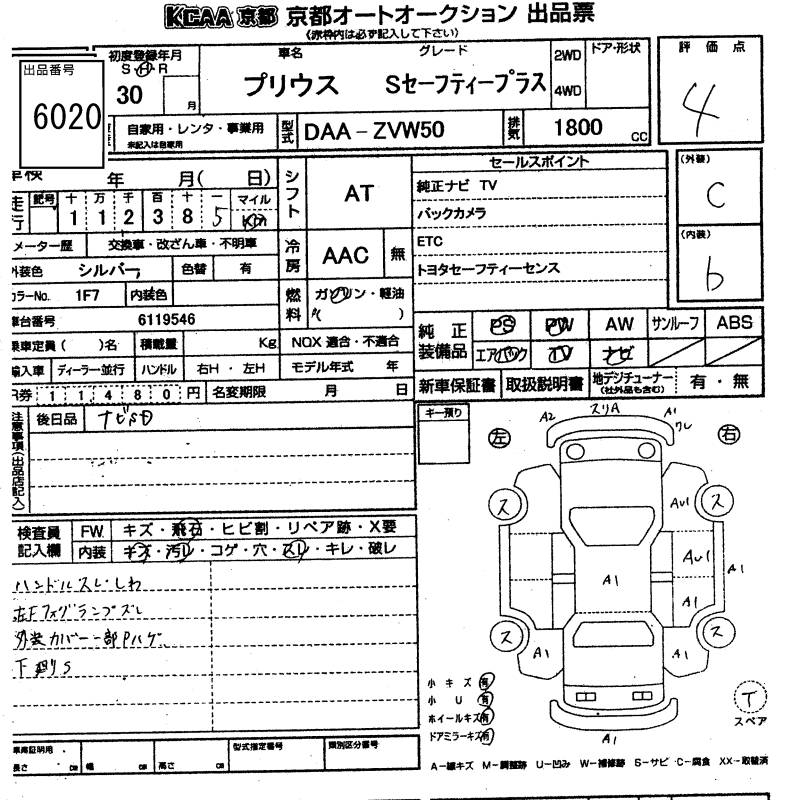 KCAA 京都 京都オートオークション 出品票
(赤枠内は必ず記入して下さい)
出品番号
6020
初度登録年月
S・H・R
30 月
車名 グレード
プリウス Sセーフティープラス
2WD
4WD
ドア・形状
評価点
4
自家用・レンタ・事業用
未記入は自家用
型式 DAA-ZVW50
排気 1800 cc
車検 年 月( 日)
シフト AT
セールスポイント
純正ナビ TV
バックカメラ
ETC
トヨタセーフティーセンス
(外装)
C
(内装)
b
走行 記号 十 万 千 百 十 一 マイル
1 1 2 3 8 5 Km
メーター歴 交換車・改ざん車・不明車
冷房 AAC 無
外装色 シルバー 色替 有
カラーNo. 1F7 内装色
燃料 ガソリン・軽油
( )
車台番号 6119546
乗車定員( )名 積載量 Kg NOX 適合・不適合
輸入車 ディーラー・並行 ハンドル 右H・左H モデル年式 年
純正装備品 PS PW AW サンルーフ ABS
エアバック TV ナビ
新車保証書 取扱説明書 地デジチューナー(社外品も含む) 有・無
R券 11480円 名変期限 月 日
注意事項(出品店記入)
後日品 ナビSD
キー預り
左 右
A2 スリA A1 ワレ
ス ス
AU1
AU1
A1 A1 A1
ス ス
A1 A1
A1
検査員記入欄 FW. キズ・飛石・ヒビ割・リペア跡・X要
内装 キズ・汚レ・コゲ・穴・スレ・キレ・破レ
ハンドルスレ・しわ
左Fフォグランプズレ
外装カバー一部Pハゲ
下廻りS
小キズ 有
小U 有
ホイールキズ 有
ドアミラーキズ 有
T
スペア
車庫証明用 型式指定番号 類別区分番号
長さ cm 幅 cm 高さ cm
A-線キズ M-調整跡 U-凹み W-補修跡 S-サビ C-腐食 XX-取替済